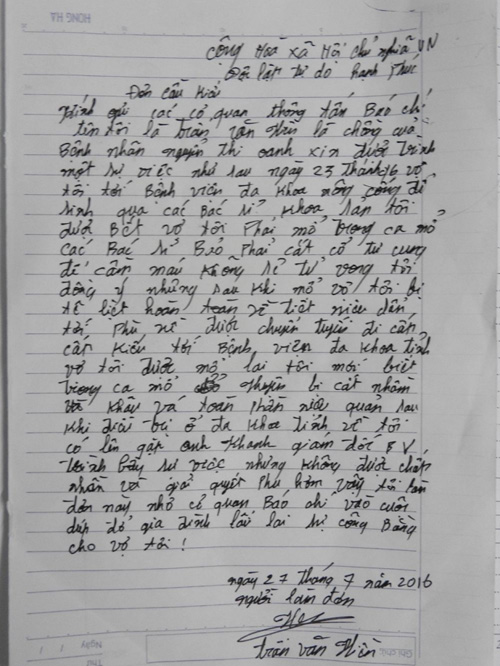 HONG HA
Cộng Hoà Xã Hội chủ nghĩa VN
Độc lập tự do hạnh Phúc
Đơn cầu Kiếu
Kính gửi các cơ quan thông tấn Báo chí
tên tôi là trần văn Hiền là chồng của
Bệnh nhân nguyễn thị oanh xin được trình
một sự việc như sau ngày 23 tháng 6 vợ
tôi tới Bệnh viện đa Khoa nông cống để
sinh qua các Bác sĩ Khoa sản tôi
được Biết vợ tôi Phải mổ trong ca mổ
các Bác sĩ Bảo Phải cắt cổ tử cung
để cầm máu Không sẽ tử vong tôi
đồng ý nhưng sau Khi mổ vợ tôi bị
tê liệt hoàn toàn về tiết niệu dẩn
tới Phù nề được chuyển tuyến đi cấp
cứu Kiếu tới Bệnh viện đa Khoa tỉnh
vợ tôi được mổ lại tôi mới biết
trong ca mổ thuyên bị cắt nhầm
và Khâu vá toàn Phần niệu quản sau
Khi điều trị ở đa Khoa tỉnh về tôi
có lên gặp anh Khanh giám đốc BV
trình bầy sự việc nhưng không được chấp
nhận và giải quyết Phù hợp vậy tôi làm
đơn này nhờ cơ quan Báo chí vào cuộc
giúp đỡ gia đình lấy lại sự công Bằng
cho vợ tôi !
ngày 27 tháng 7 năm 2016
người làm đơn
trần văn Hiền
Ghi chú:
Ngày / /
Thứ